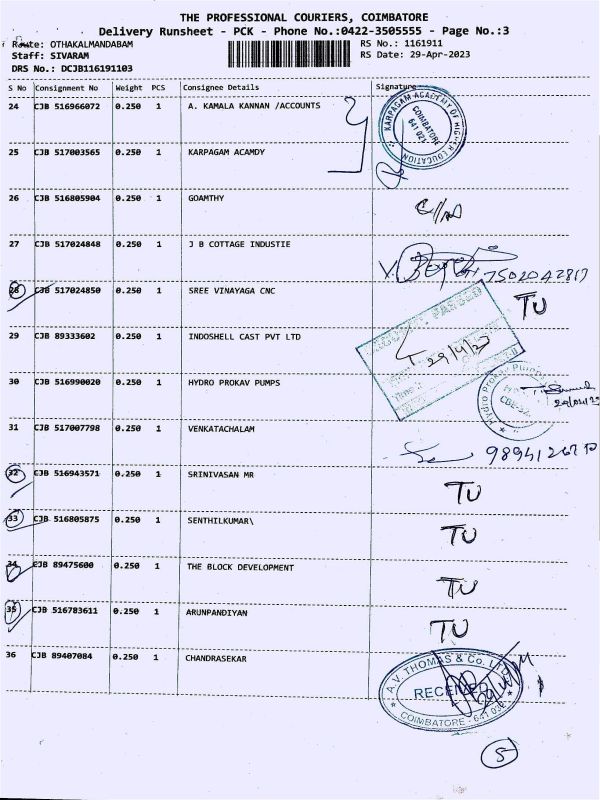 THE PROFESSIONAL COURIERS, COIMBATORE
Delivery Runsheet - PCK - Phone No.:0422-3505555 - Page No.:3
Route: OTHAKALMANDABAM RS No.: 1161911
Staff: SIVARAM RS Date: 29-Apr-2023
DRS No.: DCJB116191103
S No Consignment No Weight PCS Consignee Details Signature
24 CJB 516966072 0.250 1 A. KAMALA KANNAN /ACCOUNTS
KARPAGAM ACADEMY OF HIGHER EDUCATION
COIMBATORE
641 021
25 CJB 517003565 0.250 1 KARPAGAM ACAMDY
26 CJB 516805904 0.250 1 GOAMTHY
27 CJB 517024848 0.250 1 J B COTTAGE INDUSTIE
7502042817
28 CJB 517024850 0.250 1 SREE VINAYAGA CNC TU
29 CJB 89333602 0.250 1 INDOSHELL CAST PVT LTD
29/4/23
30 CJB 516990020 0.250 1 HYDRO PROKAV PUMPS
Hydro Prokav Pumps
31 CJB 517007798 0.250 1 VENKATACHALAM
32 CJB 516943571 0.250 1 SRINIVASAN MR TU
33 CJB 516805875 0.250 1 SENTHILKUMAR\ TU
34 CJB 89475600 0.250 1 THE BLOCK DEVELOPMENT TU
35 CJB 516783611 0.250 1 ARUNPANDIYAN TU
36 CJB 89407084 0.250 1 CHANDRASEKAR
A.V. THOMAS & Co. LTD
RECEIVED
COIMBATORE - 641 030
5